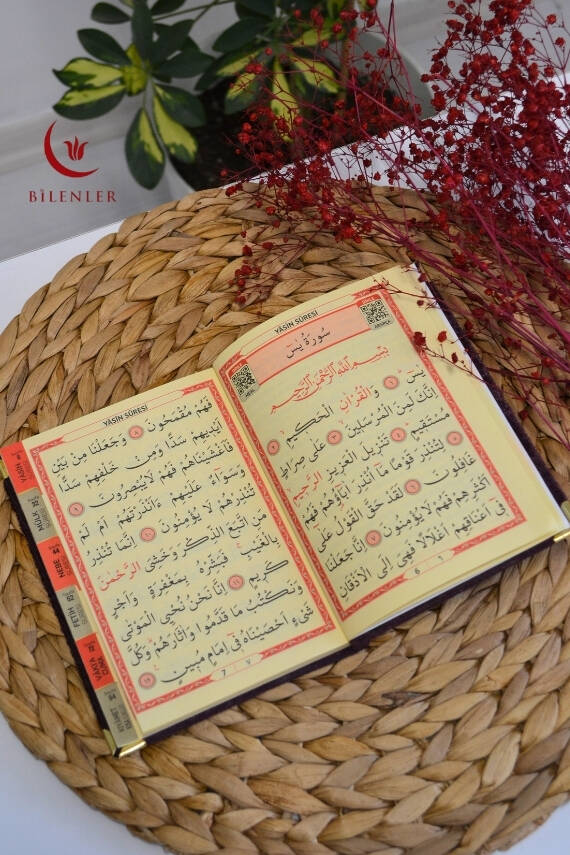 BİLENLER
YÂSİN SÛRESİ
سُورَةُ يٰسٓ
بِسْمِ اللّٰهِ الرَّحْمٰنِ الرَّحٖيمِ
يٰسٓ ﴿١﴾ وَالْقُرْاٰنِ الْحَكٖيمِ ﴿٢﴾
اِنَّكَ لَمِنَ الْمُرْسَلٖينَ ﴿٣﴾ عَلٰى صِرَاطٍ
مُسْتَقٖيمٍ ﴿٤﴾ تَنْزٖيلَ الْعَزٖيزِ الرَّحٖيمِ
﴿٥﴾ لِتُنْذِرَ قَوْمًا مَٓا اُنْذِرَ اٰبَٓاؤُ۬هُمْ فَهُمْ
غَافِلُونَ ﴿٦﴾ لَقَدْ حَقَّ الْقَوْلُ عَلٰٓى
اَكْثَرِهِمْ فَهُمْ لَا يُؤْمِنُونَ ﴿٧﴾ اِنَّا جَعَلْنَا
فٖٓي اَعْنَاقِهِمْ اَغْلَالًا فَهِيَ اِلَى الْاَذْقَانِ
6 ٦
YÂSİN SÛRESİ
فَهُمْ مُقْمَحُونَ ﴿٨﴾ وَجَعَلْنَا مِنْ بَيْنِ
اَيْدٖيهِمْ سَدًّا وَمِنْ خَلْفِهِمْ سَدًّا
فَاَغْشَيْنَاهُمْ فَهُمْ لَا يُبْصِرُونَ ﴿٩﴾
وَسَوَٓاءٌ عَلَيْهِمْ ءَاَنْذَرْتَهُمْ اَمْ لَمْ
تُنْذِرْهُمْ لَا يُؤْمِنُونَ ﴿١٠﴾ اِنَّمَا تُنْذِرُ
مَنِ اتَّبَعَ الذِّكْرَ وَخَشِيَ الرَّحْمٰنَ
بِالْغَيْبِۚ فَبَشِّرْهُ بِمَغْفِرَةٍ وَاَجْرٍ
كَرٖيمٍ ﴿١١﴾ اِنَّا نَحْنُ نُحْيِ الْمَوْتٰى
وَنَكْتُبُ مَا قَدَّمُوا وَاٰثَارَهُمْ وَكُلَّ
شَيْءٍ اَحْصَيْنَاهُ فٖٓي اِمَامٍ مُبٖينٍ ﴿١٢﴾
7 ٧
YÂSİN
MÜLK
NEBE
FETİH
VÂKIA
CUMA
KIYAMET